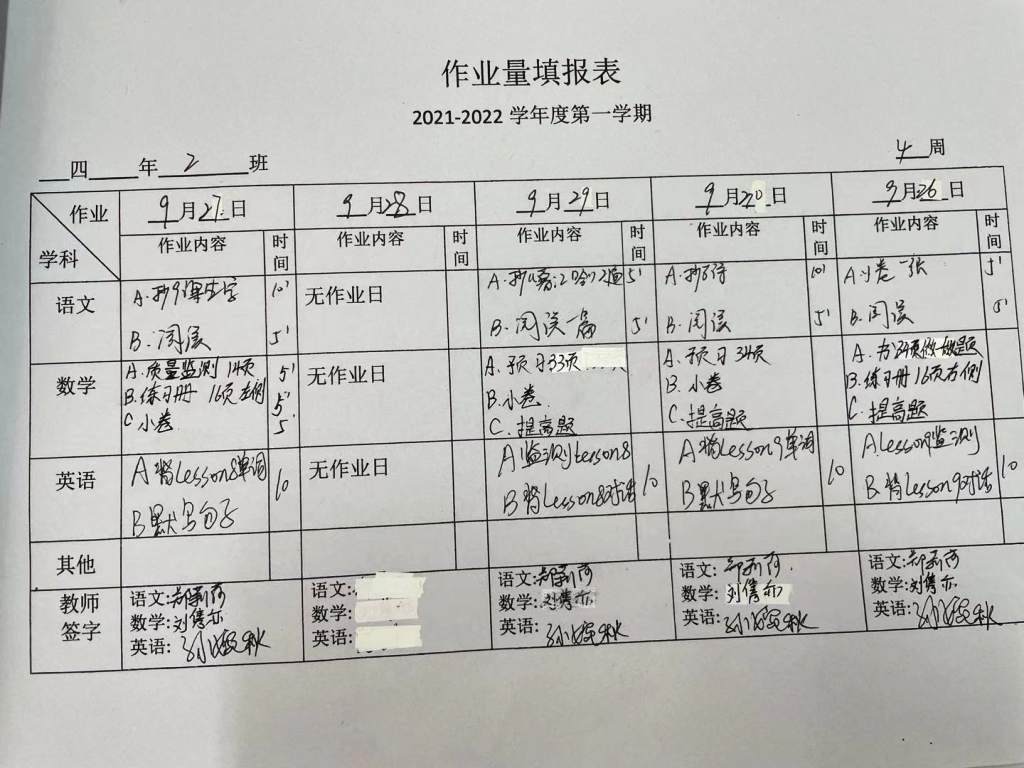 作业量填报表
2021-2022 学年度第一学期
四 年 2 班
4 周
作业
学科
9 月 27 日
9 月 28 日
9 月 29 日
9 月 日
9 月 26 日
作业内容 时间
作业内容 时间
作业内容 时间
作业内容 时间
作业内容 时间
语文
A.抄9课生字 10'
B.阅读 5'
无作业日
5'
B.阅读一篇 5'
A.抄古诗 10'
B.阅读 5'
A.小卷一张 5'
B.阅读 5'
数学
A.质量监测 14页 5'
B.练习册 16页左侧 5'
C 小卷 5
无作业日
A.预习33页
B.小卷
C.提高题
A.预习 34页
B.小卷
C.提高题
B.练习册16页左侧
C.提高题
英语
A 背Lesson8单词
B默写句子
10
无作业日
A监测lesson8
B背Lesson8对话
10
A背Lesson9单词
B默写句子
10
A.Lesson9监测
B.背Lesson9对话
10
其他
教师
签字
语文:
数学:刘隽亦
英语:
语文:
数学:
英语:
语文:
数学:刘隽亦
英语:
语文:
数学:刘隽亦
英语:
语文:
数学:刘隽亦
英语: